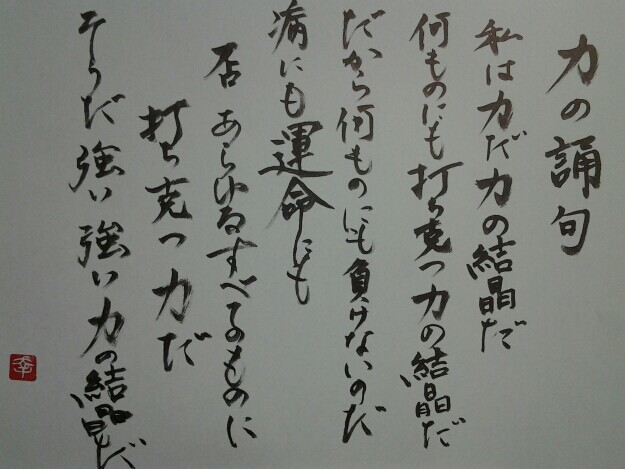 力の誦句
私は力だ力の結晶だ
何ものにも打ち克つ力の結晶だ
だから何ものにも負けないのだ
病にも運命にも
否あらゆるすべてのものに
打ち克つ力だ
そうだ強い強い力の結晶だ
幸